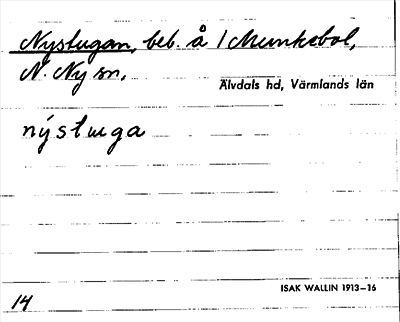 Nystugan, beb. å 1 Munkebol,
N. Ny sn,
Älvdals hd, Värmlands län
nýstuga
ISAK WALLIN 1913–16
14